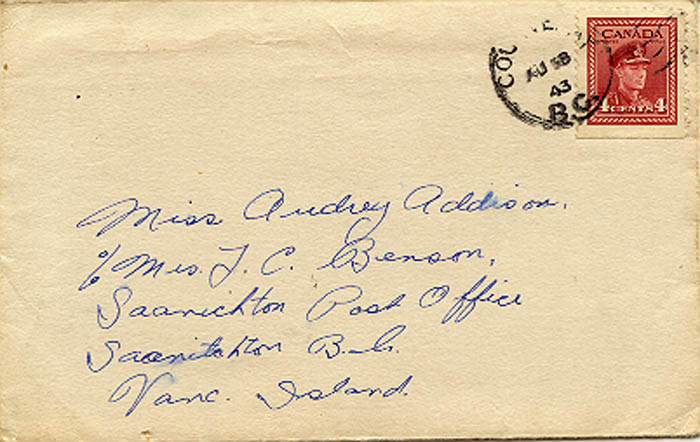 CANADA
4 CENTS 4
AU 18
43
B.C.
Miss Audrey Addison,
c/o Mrs. J. C. Benson,
Saanichton Post Office
Saanichton B.C.
Vanc. Island.